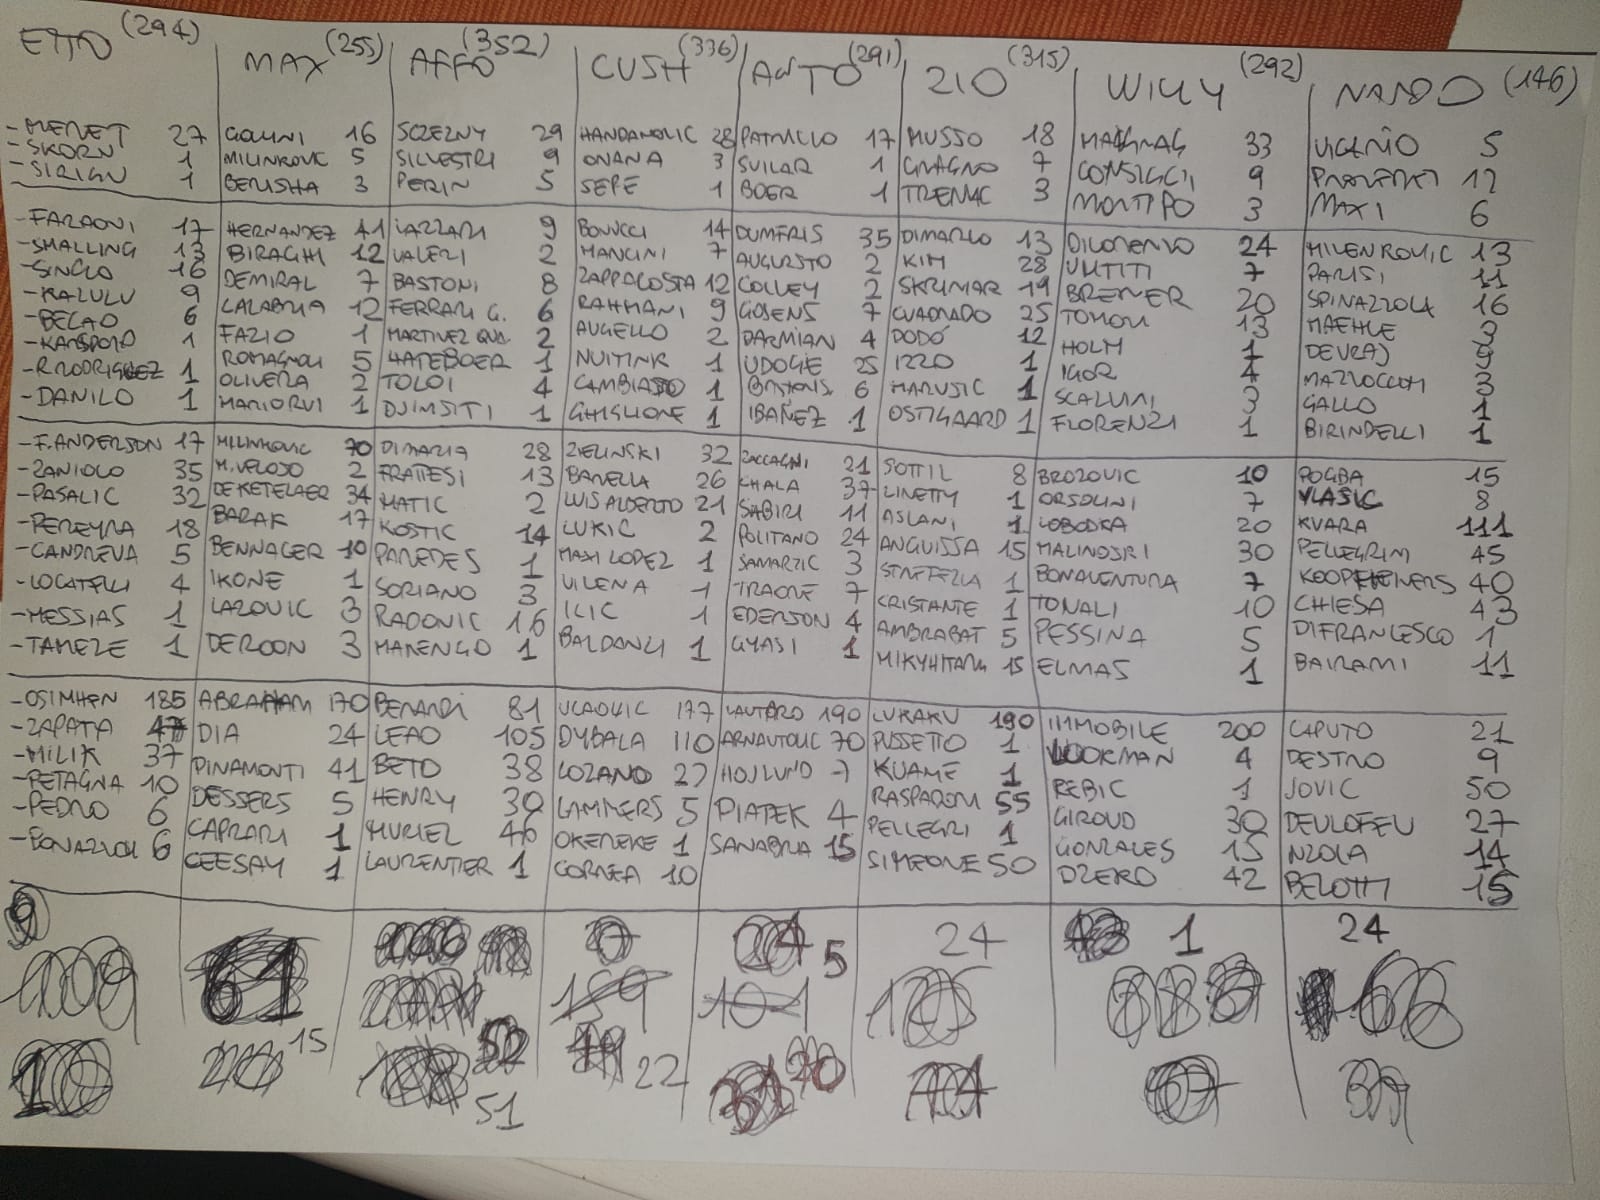 ETTO (294) MAX (255) AFFO (352) CUSH (336) AUTO (291) ZIO (315) WILLY (292) NANDO (146)
-MERET 27 GOLLINI 16 SCZEZNY 29 HANDANOVIC 28 PATRICIO 17 MUSSO 18 MAIGNAG 33 VICARIO 5
-SKORN 1 MILINKOVIC 5 SILVESTRI 9 ONANA 3 SVILAR 1 CRAGNO 7 CONSIGLI 9 PROVEDEL 12
-SIRIGU 1 BERISHA 3 PERIN 5 SEPE 1 BOER 1 3 MONTIPO 3 MAXI 6
-FARAONI 17 HERNANDEZ 41 LAZZARI 9 BONUCCI 14 DUMFRIS 35 DIMARCO 13 DILORENZO 24 MILENKOVIC 13
-SMALLING 13 BIRAGHI 12 VALERI 2 MANCINI 7 AUGUSTO 2 KIM 28 UMTITI 7 PARISI 11
-SINGO 16 DEMIRAL 7 BASTONI 8 ZAPPACOSTA 12 COLLEY 2 SKRINIAR 19 BREMER 20 SPINAZZOLA 16
-KALULU 9 CALABRIA 12 FERRARI G. 6 RAHMANI 9 GOSENS 7 CUADRADO 25 TOMORI 13 MAEHLE 3
-BECAO 6 FAZIO 1 MARTINEZ QUA. 2 AUGELLO 2 DARMIAN 4 DODÓ 12 HOLM 1 DEVRAJ 9
1 ROMAGNOLI 5 HATEBOER 1 NUITINK 1 UDOGIE 25 IZZO 1 IGOR 4 MAZZOCCHI 3
-R.RODRIGUEZ 1 OLIVERA 2 TOLOI 4 CAMBIASO 1 6 MARUSIC 1 SCALVINI 3 GALLO 1
-DANILO 1 MARIORVI 1 DJIMSITI 1 GHIGLIONE 1 IBAÑEZ 1 OSTIGAARD 1 FLORENZI 1 BIRINDELLI 1
-F.ANDERSON 17 MILINKOVIC 70 DIMARIA 28 ZIELINSKI 32 ZACCAGNI 21 SOTTIL 8 BROZOVIC 10 POGBA 15
-ZANIOLO 35 M.VELOSO 2 FRATTESI 13 BARELLA 26 CHALA 37 LINETTY 1 ORSOLINI 7 VLASIC 8
-PASALIC 32 DEKETELAER 34 MATIC 2 LUIS ALBERTO 21 SABIRI 11 ASLANI 1 LOBODKA 20 KVARA 111
-PEREYRA 18 BARAK 17 KOSTIC 14 LUKIC 2 POLITANO 24 ANGUISSA 15 MALINOSKI 30 PELLEGRINI 45
-CANDREVA 5 BENNACER 10 PAREDES 1 MAXI LOPEZ 1 SAMARZIC 3 STREFEZZA 1 BONAVENTURA 7 KOOPMEINERS 40
-LOCATELLI 4 IKONE 1 SORIANO 3 VILENA 1 TRAORE 7 CRISTANTE 1 TONALI 10 CHIESA 43
-MESSIAS 1 LAZOVIC 3 RADONIC 16 ILIC 1 EDERSON 4 AMBRABAT 5 PESSINA 5 DIFRANCESCO 1
-TAMEZE 1 DEROON 3 MARENGO 1 BALDANZI 1 GYASI 1 MIKYHITARN 15 ELMAS 1 BAIRAMI 11
-OSIMHEN 185 ABRAHAM 170 BERARDI 81 VLAOVIC 177 LAUTARO 190 LUKAKU 190 IMMOBILE 200 CAPUTO 21
-ZAPATA 47 DIA 24 LEAO 105 DYBALA 110 ARNAUTOVIC 70 PUSSETTO 1 LOOKMAN 4 DESTRO 9
-MILIK 37 PINAMONTI 41 BETO 38 LOZANO 27 HOJLUND 7 KUAME 1 REBIC 1 JOVIC 50
-PETAGNA 10 DESSERS 5 HENRY 39 LAMMERS 5 PIATEK 4 RASPADORI 55 GIROUD 30 DEULOFEU 27
-PEDRO 6 CAPRARI 1 MURIEL 46 OKEREKE 1 SANABRIA 15 PELLEGRI 1 GONZALES 15 NZOLA 14
-BONAZZOLI 6 CEESAY 1 LAURENTIER 1 CORNEA 10 SIMEONE 50 DZEKO 42 BELOTTI 15
9 5 24 1 24
109 61 159 101
15 22
51